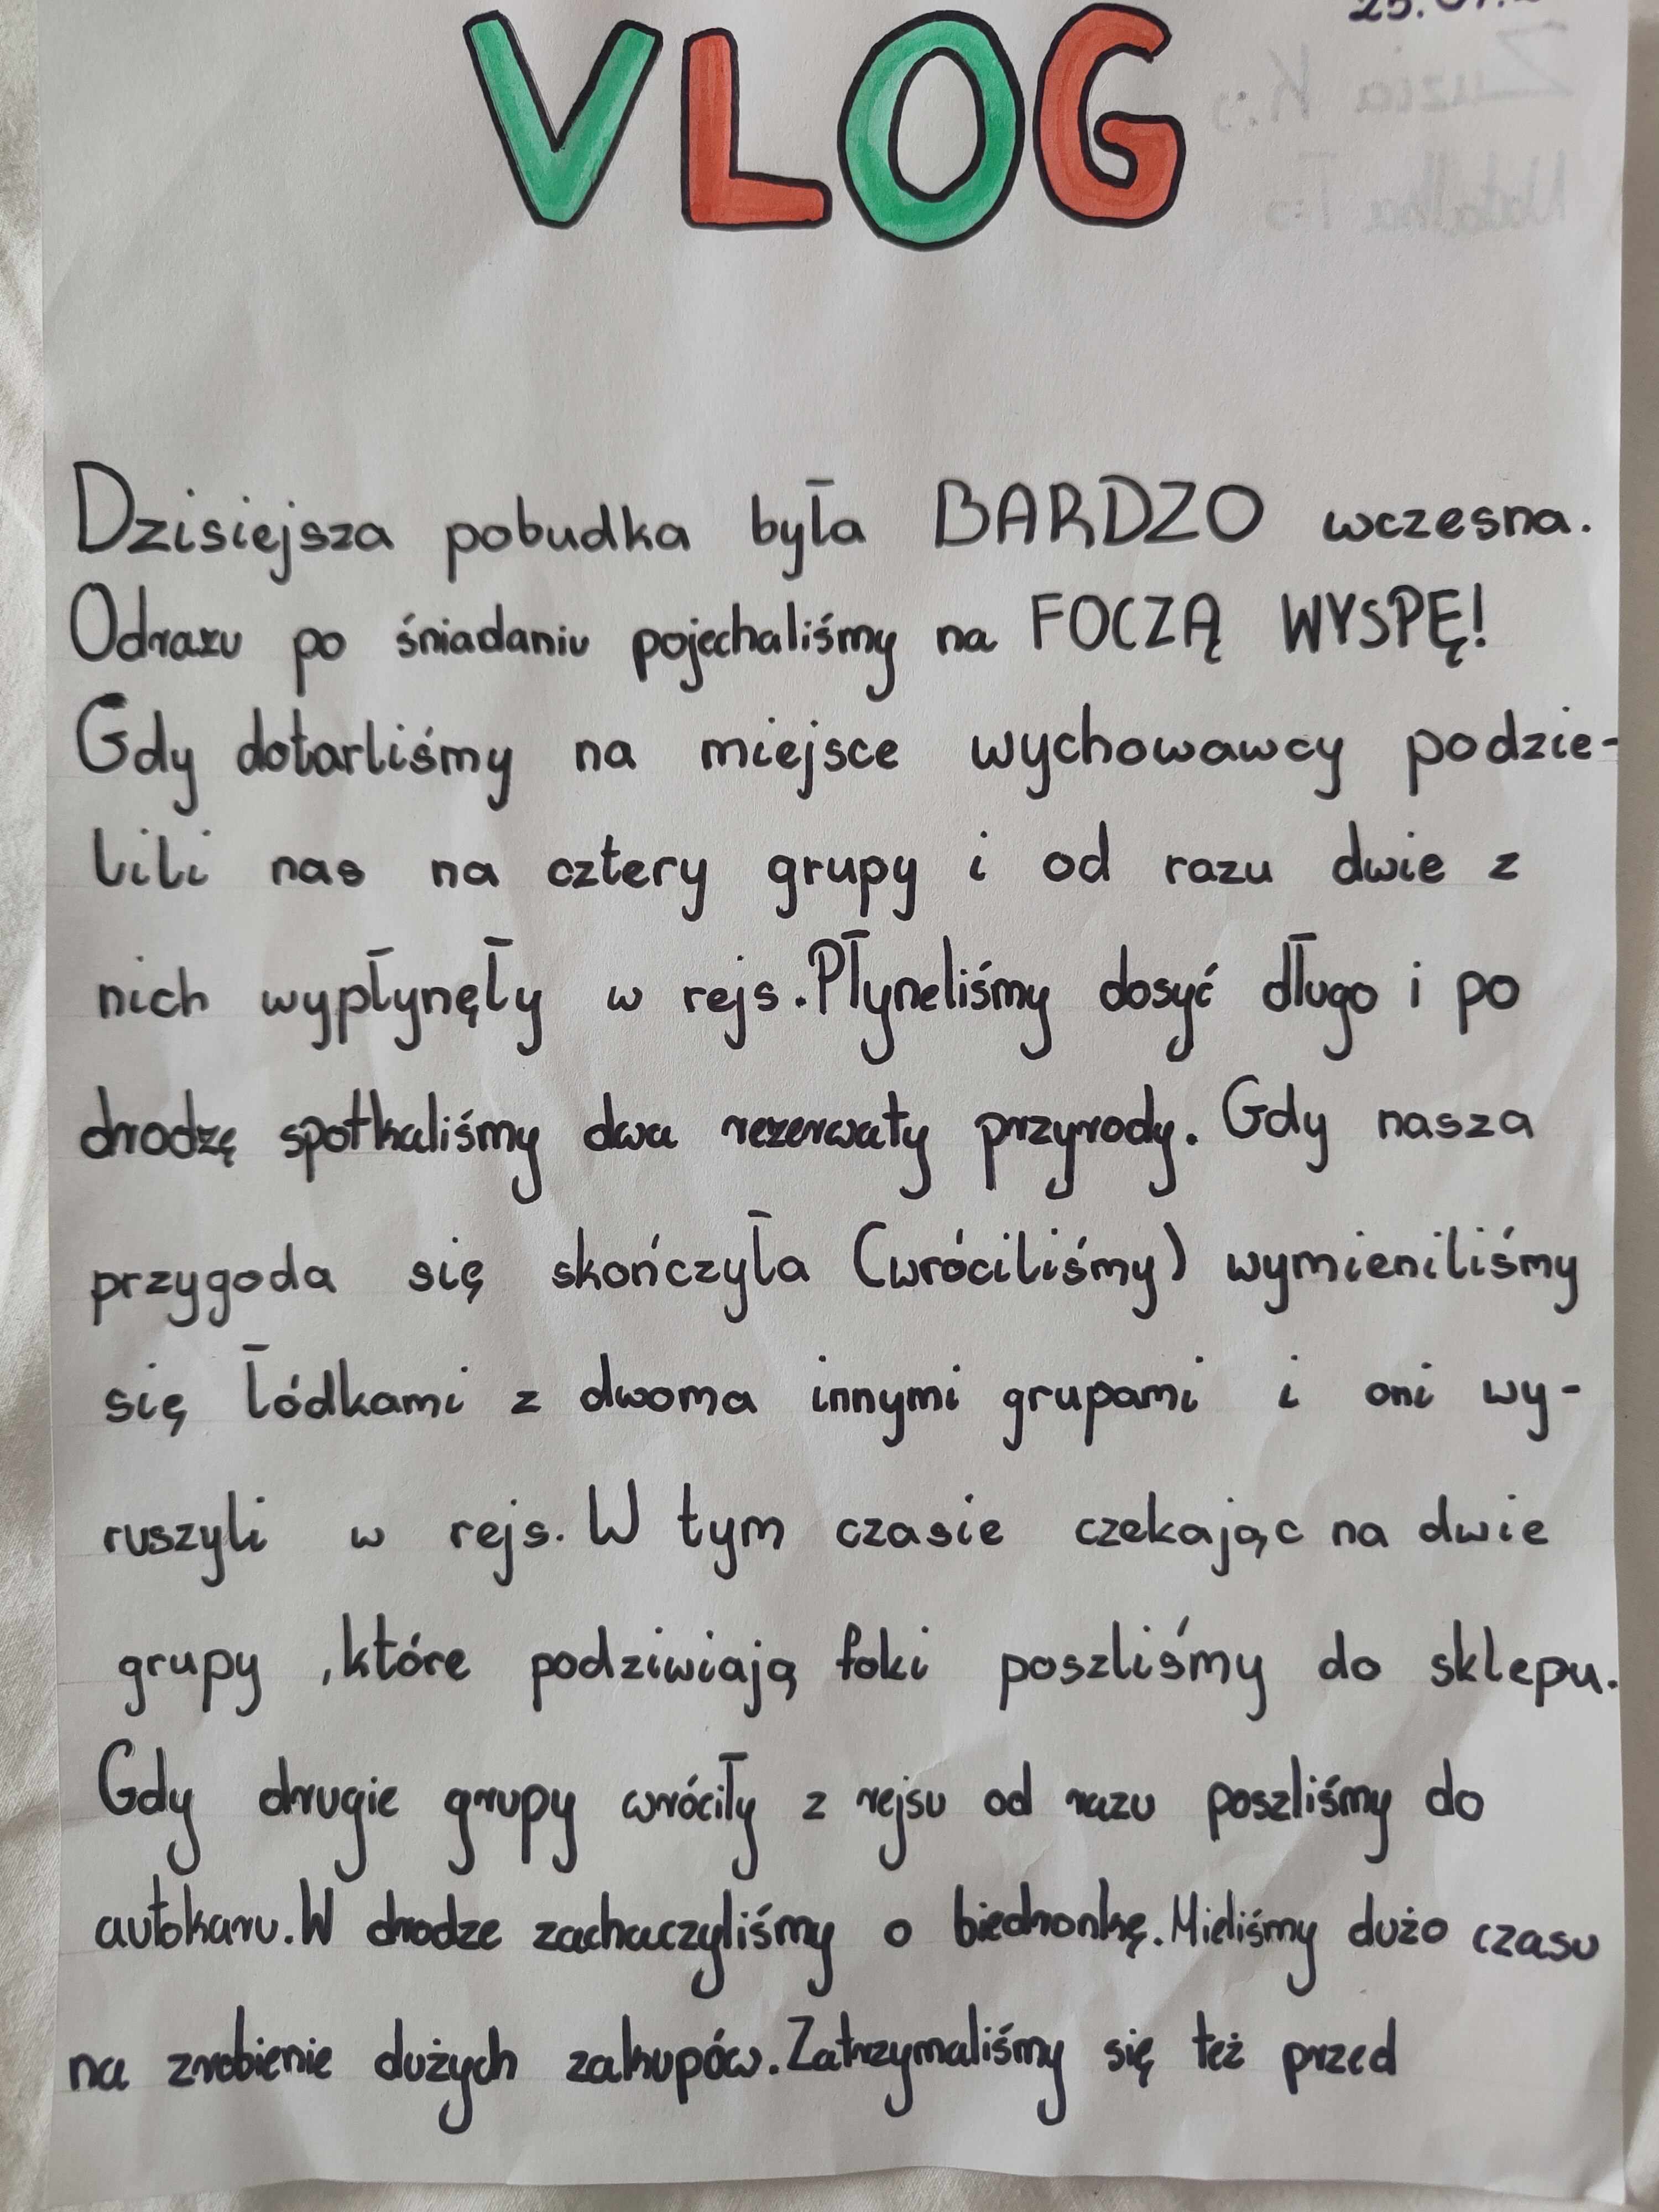 VLOG
Dzisiejsza pobudka była BARDZO wczesna.
Odrazu po śniadaniu pojechaliśmy na FOCZĄ WYSPĘ!
Gdy dotarliśmy na miejsce wychowawcy podzie-
lili nas na cztery grupy i od razu dwie z
nich wypłynęły w rejs. Płyneliśmy dosyć długo i po
drodzę spotkaliśmy dwa rezerwaty przyrody. Gdy nasza
przygoda się skończyła (wróciliśmy) wymieniliśmy
się łódkami z dwoma innymi grupami i oni wy-
ruszyli w rejs. W tym czasie czekając na dwie
grupy ,które podziwiają foki poszliśmy do sklepu.
Gdy drugie grupy wróciły z rejsu od razu poszliśmy do
autokaru. W drodze zachaczyliśmy o biedronkę. Mieliśmy dużo czasu
na zrobienie dużych zakupów. Zatrzymaliśmy się też przed